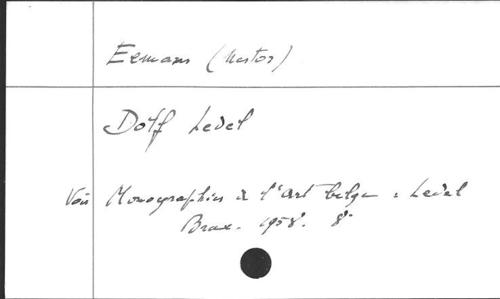 Eemans (Nestor)
Dolf Ledel
Voir Monographies de l'art belge : Ledel
Brux. 1958. 8°